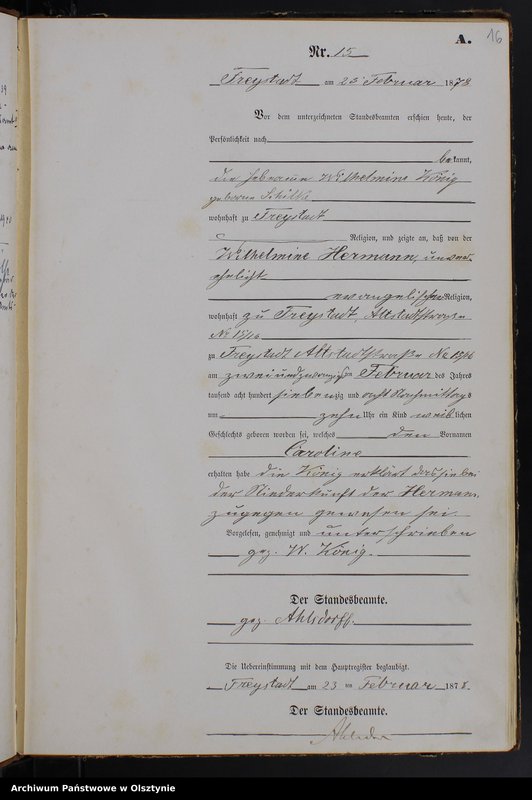 A. 16
Nr. 15
Freystadt am 23 Februar 1878
Vor dem unterzeichneten Standesbeamten erschien heute, der
Persönlichkeit nach
bekannt,
die Hebamme Wilhelmine König
geborne
wohnhaft zu Freystadt
Religion, und zeigte an, daß von der
Wilhelmine Hermann, unver-
ehelicht
evangelischen Religion,
wohnhaft zu Freystadt, Altstadtstraße
No 15/16
zu Freystadt Altstadtstraße No 15/16
am zweiundzwanzigsten Februar des Jahres
tausend acht hundert siebenzig und acht Nachmittags
um zehn Uhr ein Kind weiblichen
Geschlechts geboren worden sei, welches den Vornamen
Caroline
erhalten habe die König erklärt das sie bei
der Niederkunft der Hermann
zugegen gewesen sei
Vorgelesen, genehmigt und unterschrieben
gez. W. König.
Der Standesbeamte.
gez. Ahlsdorff.
Die Uebereinstimmung mit dem Hauptregister beglaubigt.
Freystadt am 23 ten Februar 1878.
Der Standesbeamte.
Archiwum Państwowe w Olsztynie